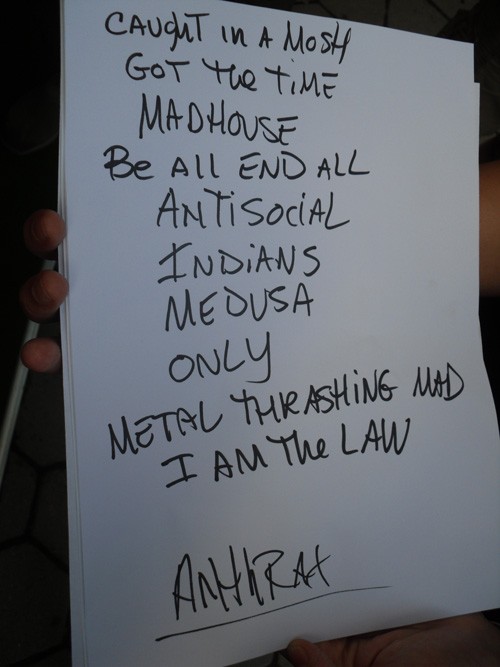 CAUGHT IN A MOSH
GOT the TIME
MADHOUSE
Be ALL END ALL
ANTISOCIAL
INDIANS
MEDUSA
ONLY
METAL THRASHING MAD
I AM The LAW
ANTHRAX